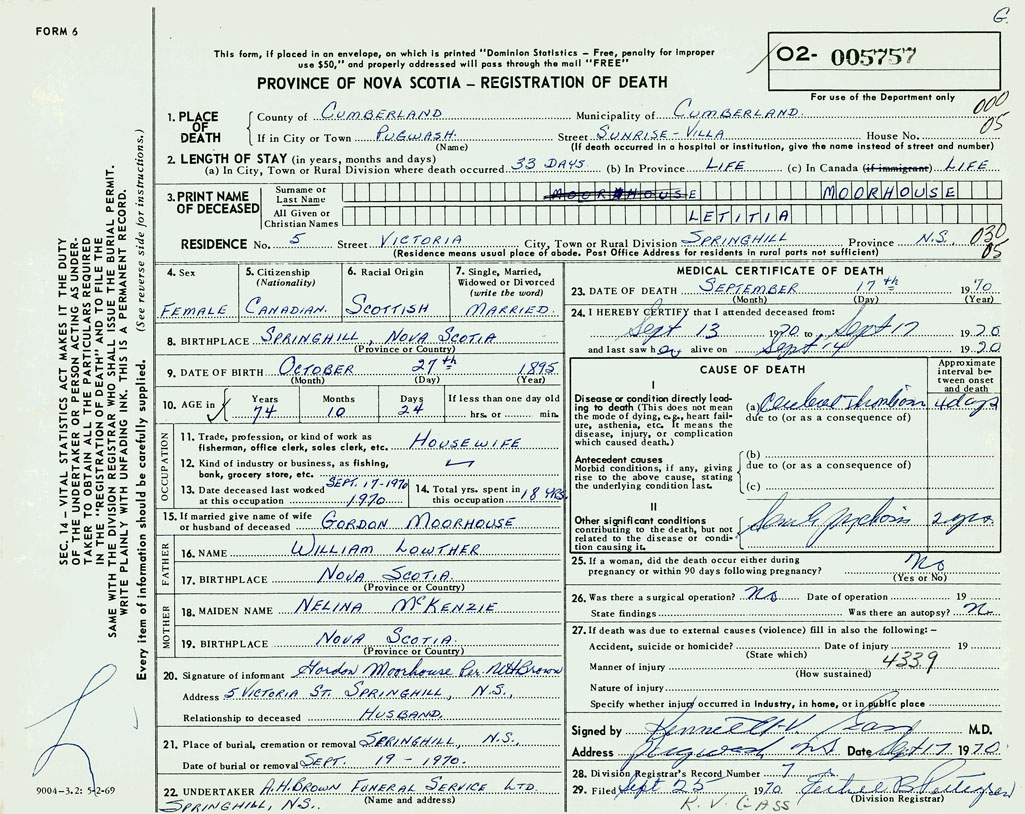 G.
FORM 6
This form, if placed in an envelope, on which is printed "Dominion Statistics – Free, penalty for improper
use $50," and properly addressed will pass through the mail "FREE"
PROVINCE OF NOVA SCOTIA – REGISTRATION OF DEATH
02- 005757
For use of the Department only
000
05
SEC. 14 – VITAL STATISTICS ACT MAKES IT THE DUTY
OF THE UNDERTAKER OR PERSON ACTING AS UNDER-
TAKER TO OBTAIN ALL THE PARTICULARS REQUIRED
IN THE "REGISTRATION OF DEATH" AND TO FILE THE
SAME WITH THE DIVISION REGISTRAR WHO SHALL ISSUE THE BURIAL PERMIT.
WRITE PLAINLY WITH UNFADING INK. THIS IS A PERMANENT RECORD.
Every item of information should be carefully supplied. (See reverse side for instructions.)
1. PLACE OF DEATH
County of CUMBERLAND Municipality of CUMBERLAND.
If in City or Town PUGWASH. Street SUNRISE-VILLA House No.
(Name) (If death occurred in a hospital or institution, give the name instead of street and number)
2. LENGTH OF STAY (in years, months and days)
(a) In City, Town or Rural Division where death occurred 33 DAYS (b) In Province LIFE (c) In Canada (if immigrant) LIFE
3. PRINT NAME OF DECEASED
Surname or Last Name MOORHOUSE MOORHOUSE
All Given or Christian Names LETITIA
RESIDENCE No. 5 Street VICTORIA City, Town or Rural Division SPRINGHILL Province N.S.,
030
05
(Residence means usual place of abode. Post Office Address for residents in rural parts not sufficient)
4. Sex
FEMALE
5. Citizenship
(Nationality)
CANADIAN.
6. Racial Origin
SCOTTISH
7. Single, Married,
Widowed or Divorced
(write the word)
MARRIED.
8. BIRTHPLACE SPRINGHILL, NOVA SCOTIA
(Province or Country)
9. DATE OF BIRTH OCTOBER 27th 1895
(Month) (Day) (Year)
10. AGE in Years Months Days If less than one day old
74 10 24 hrs. or min.
OCCUPATION
11. Trade, profession, or kind of work as
fisherman, office clerk, sales clerk, etc. HOUSEWIFE
12. Kind of industry or business, as fishing,
bank, grocery store, etc.
13. Date deceased last worked SEPT. 17-1970
at this occupation 1970
14. Total yrs. spent in
this occupation 18 YRS.
15. If married give name of wife
or husband of deceased GORDON MOORHOUSE
FATHER
16. NAME WILLIAM LOWTHER
17. BIRTHPLACE NOVA SCOTIA.
(Province or Country)
MOTHER
18. MAIDEN NAME NELINA McKENZIE
19. BIRTHPLACE NOVA SCOTIA.
(Province or Country)
20. Signature of informant Gordon Moorhouse Per Brown
Address 5 VICTORIA ST. SPRINGHILL, N.S.,
Relationship to deceased HUSBAND.
21. Place of burial, cremation or removal SPRINGHILL, N.S.,
Date of burial or removal SEPT. 19 – 1970.
22. UNDERTAKER A.H. BROWN FUNERAL SERVICE LTD.
(Name and address)
SPRINGHILL, N.S.
9004-3.2: 5-2-69
MEDICAL CERTIFICATE OF DEATH
23. DATE OF DEATH SEPTEMBER 17th 1970
(Month) (Day) (Year)
24. I HEREBY CERTIFY that I attended deceased from:
Sept 13 1970 to Sept 17 1970
and last saw her alive on Sept 14 1970
CAUSE OF DEATH
Approximate
interval be-
tween onset
and death
I
Disease or condition directly lead-
ing to death (This does not mean
the mode of dying, e.g., heart fail-
ure, asthenia, etc. It means the
disease, injury, or complication
which caused death.)
(a) Cerebral Thrombosis 4 days
due to (or as a consequence of)
Antecedent causes
Morbid conditions, if any, giving
rise to the above cause, stating
the underlying condition last.
(b)
due to (or as a consequence of)
(c)
II
Other significant conditions
contributing to the death, but not
related to the disease or condi-
tion causing it.
2 yrs.
25. If a woman, did the death occur either during
pregnancy or within 90 days following pregnancy? No
(Yes or No)
26. Was there a surgical operation? No Date of operation 19
State findings Was there an autopsy?
27. If death was due to external causes (violence) fill in also the following: –
Accident, suicide or homicide? Date of injury 19
(State which)
Manner of injury 4339
(How sustained)
Nature of injury
Specify whether injury occurred in industry, in home, or in public place
Signed by M.D.
Address Pugwash NS Date Sept 17 1970.
28. Division Registrar's Record Number 7
29. Filed Sept 25 1970.
(Division Registrar)
R.V. GASS